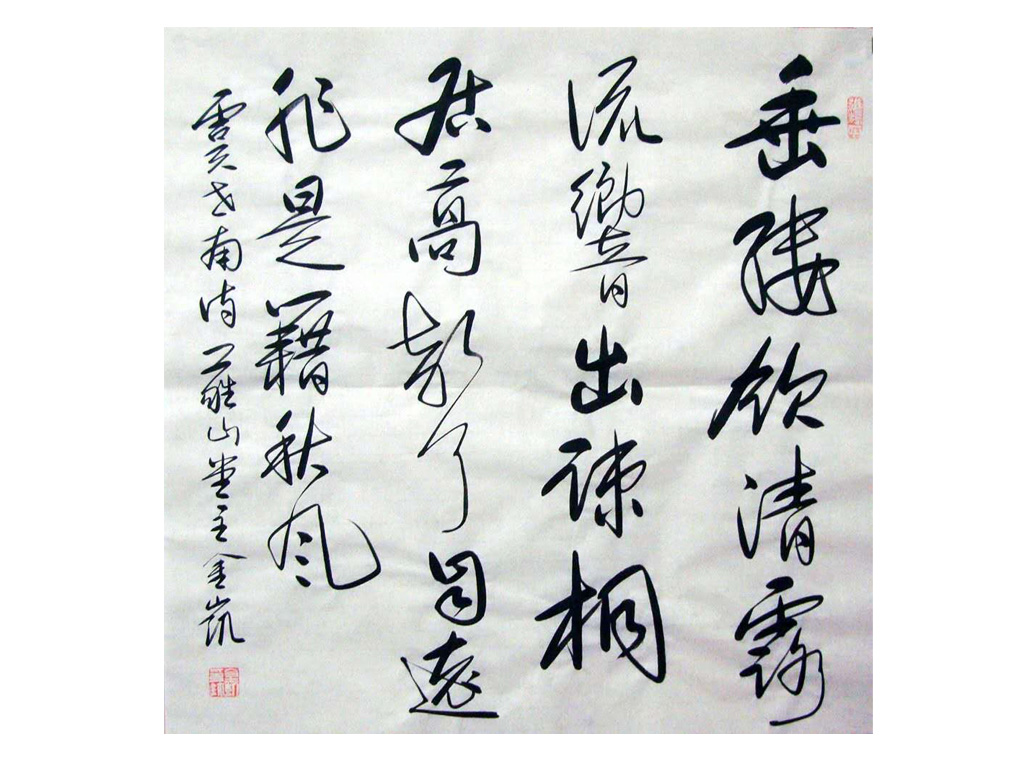 垂緌飲清露
流響出疎桐
居高聲自遠
非是籍秋風
虞世南詩 山堂主金凱